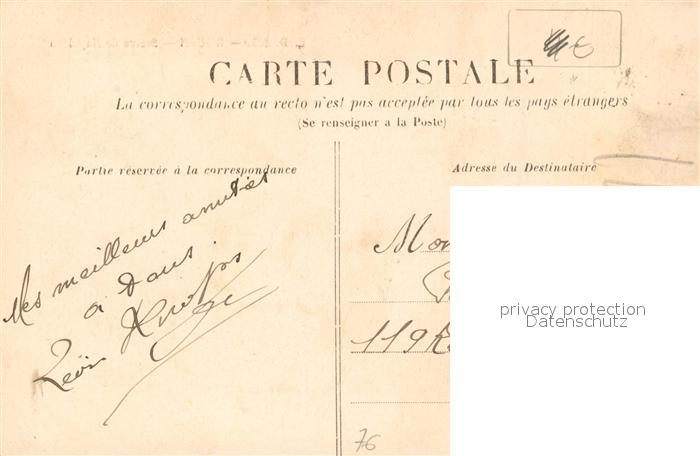 CARTE POSTALE
La correspondance au recto n'est pas acceptée par tous les pays étrangers
(Se renseigner a la Poste)
Partie réservée à la correspondance
Adresse du Destinataire
Mes meilleurs amitiés
a tous.
Léon
Mon
119 R
privacy protection
Datenschutz
76